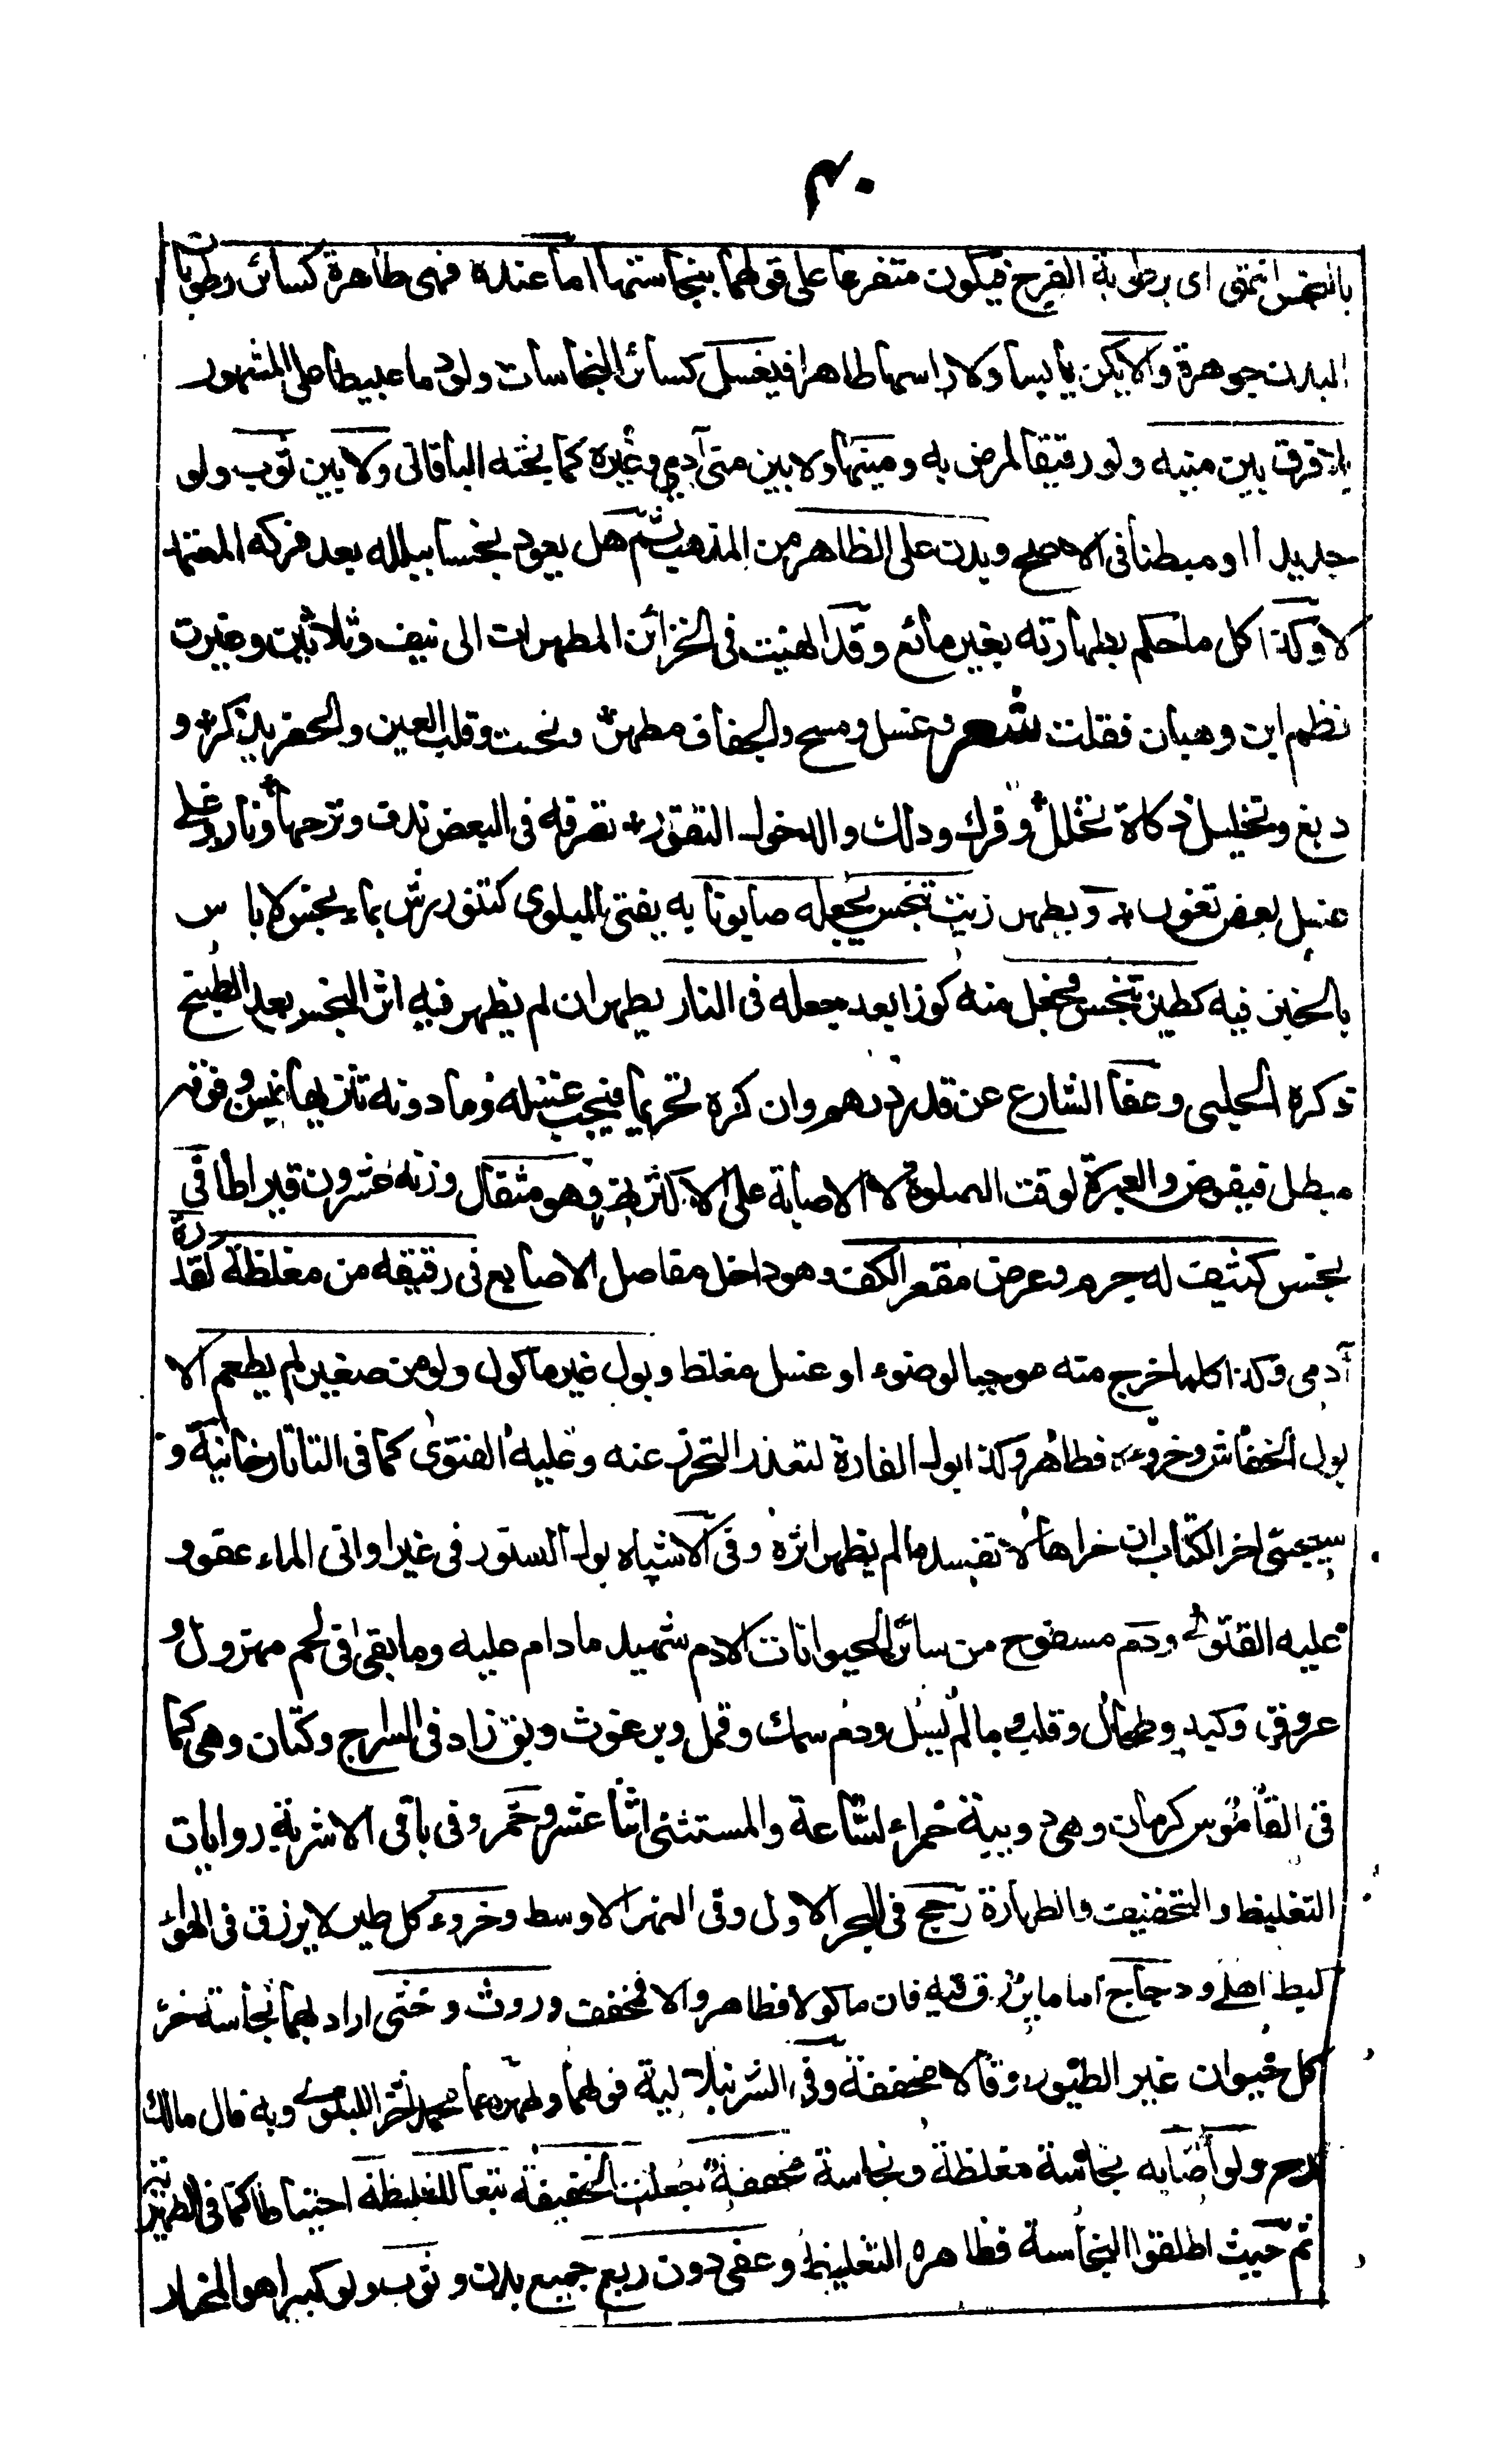 ٣٠
بالنجس انتهى اى برطوبة الفرج فيكون متفرعا على قولهما بنجاستها اما عنده فهى طاهرة كسائر رطوبات
البدن جوهرة والا يكن يابسا ولا راسها طاهرا فيغسل كسائر النجاسات ولو دما عبيطا على المشهور
بلا فرق بين منيه ولو رقيقا لمرض به ومنيها ولا بين منى آدمى وغيره كما بحثه الباقانى ولا بين ثوب ولو
جديدا او مبطنا فى الاصح وبدن على الظاهر من المذهب ثم هل يعود نجسا ببلله بعد فركه المعتمد
لا وكذا كل ما حكم بطهارته بغير مائع وقد انهيت فى الخزائن المطهرات الى نيف وثلاثين وغيرت
نظم ابن وهبان فقلت شعر وغسل ومسح والجفاف مطهر ونحت وقلب العين والحفر يذكر و
دبغ وتخليل ذكاة تخلل وفرك ودلك والدخول التغور تصرفه فى البعض ندف ونزحها ونار وغلى
غسل بعض تغور ويطهر زيت تنجس بجعله صابونا به يفتى للبلوى كتنور رش بماء نجس لا باس
بالخبز فيه كطين تنجس فجعل منه كوزا بعد جعله فى النار يطهر ان لم يظهر فيه اثر النجس بعد الطبخ
ذكره الحلبى وعفا الشارع عن قدر درهم وان كره تحريما فيجب غسله وما دونه تنزيها فيسن وفوقه
مبطل فيفرض والعبرة لوقت الصلوة لا الاصابة على الاكثر نهر وهو مثقال وزنه عشرون قيراطا فى
نجس كثيف له جرم وعرض مقعر الكف وهو داخل مفاصل الاصابع فى رقيقه من مغلظة كعذرة
آدمى وكذا كلما خرج منه موجبا لوضوء او غسل مغلظ وبول غير ماكول ولو من صغير لم يطعم الا
بول الخفاش وخروءه فطاهر وكذا بول الفارة لتعذر التحرز عنه وعليه الفتوى كما فى التاتارخانية و
سيجىء اخر الكتاب ان خراها لا تفسد ما لم يظهر اثره وفى الاشباه بول السنور فى غير اوانى الماء عفو و
عليه الفتوى ودم مسفوح من سائر الحيوانات الا دم شهيد ما دام عليه وما بقى فى لحم مهزول و
عروق وكبد وطحال وقلب وما لم يسل ودم سمك وقمل وبرغوث وبق زاد فى السراج وكتان وهى كما
فى القاموس كرمان وهى دويبة حمراء لساعة والمستثنى اثنا عشر وخمر وفى باقى الاشربة روايات
التغليظ والتخفيف والطهارة رجح فى البحر الاول وفى النهر الاوسط وخروء كل طير لا يزرق فى الهواء
كبط اهلى ودجاج اما ما يزرق فيه فان ماكولا فطاهر والا فمخفف وروث وخثى اراد بهما نجاسة خرء
كل حيوان غير الطيور وقالا مخففة وفى الشرنبلالية قولهما وطهرهما محمد اخرا للبلوى وبه قال مالك
رح ولو اصابه نجاسة مغلظة ونجاسة مخففة جعلت الخفيفة تبعا للغليظة احتياطا كما فى الظهيرية
ثم حيث اطلقوا النجاسة فظاهره التغليظ وعفى دون ربع جميع بدن وثوب ولو كبيرا هو المختار